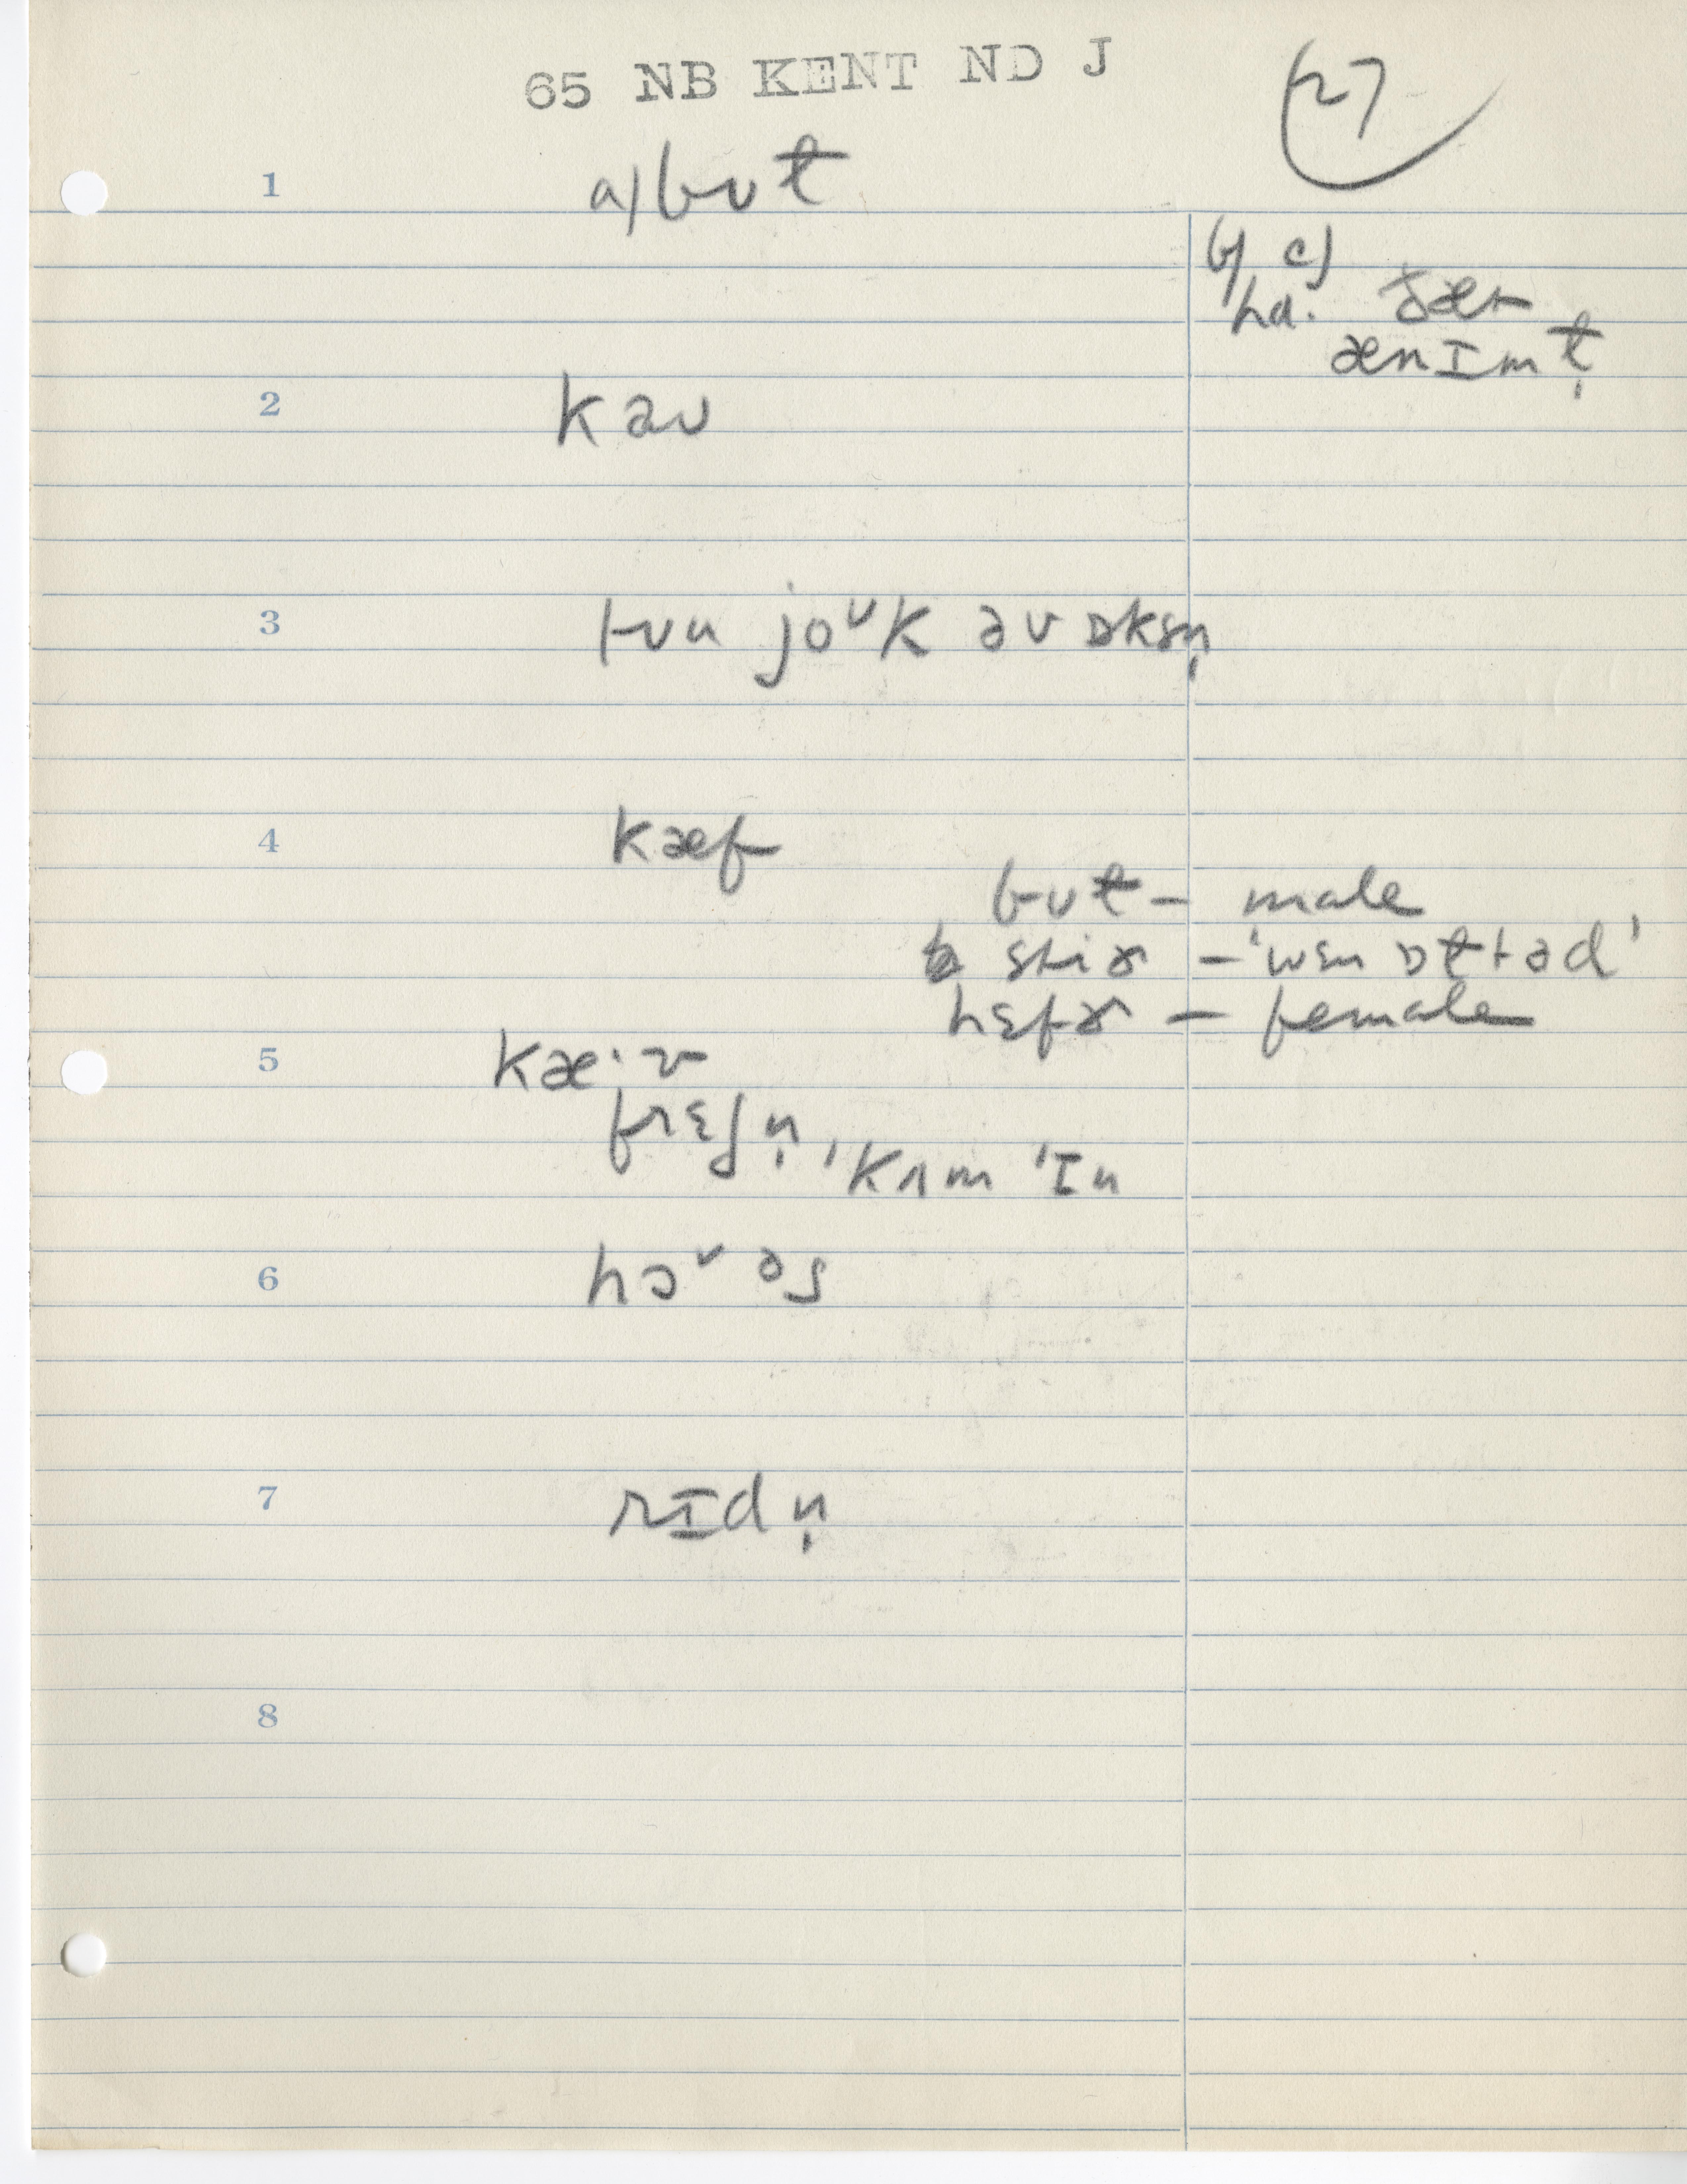 65 NB KENT ND J
27
1 a) bʊɫ
b) c)
hd. ðæt
ænɪmɫ̩
2 kaʊ
3 tʊu joᴜk əv ɒksn̩
4 kæf
bʊɫ – male
stiɚ – 'wɛn ɒɫtəd'
hɛfɚ – female
5 kæ·v
frɛʃn̩, 'kʌm 'ɪn
6 hɔᴜ əs
7 rɪdn̩
8